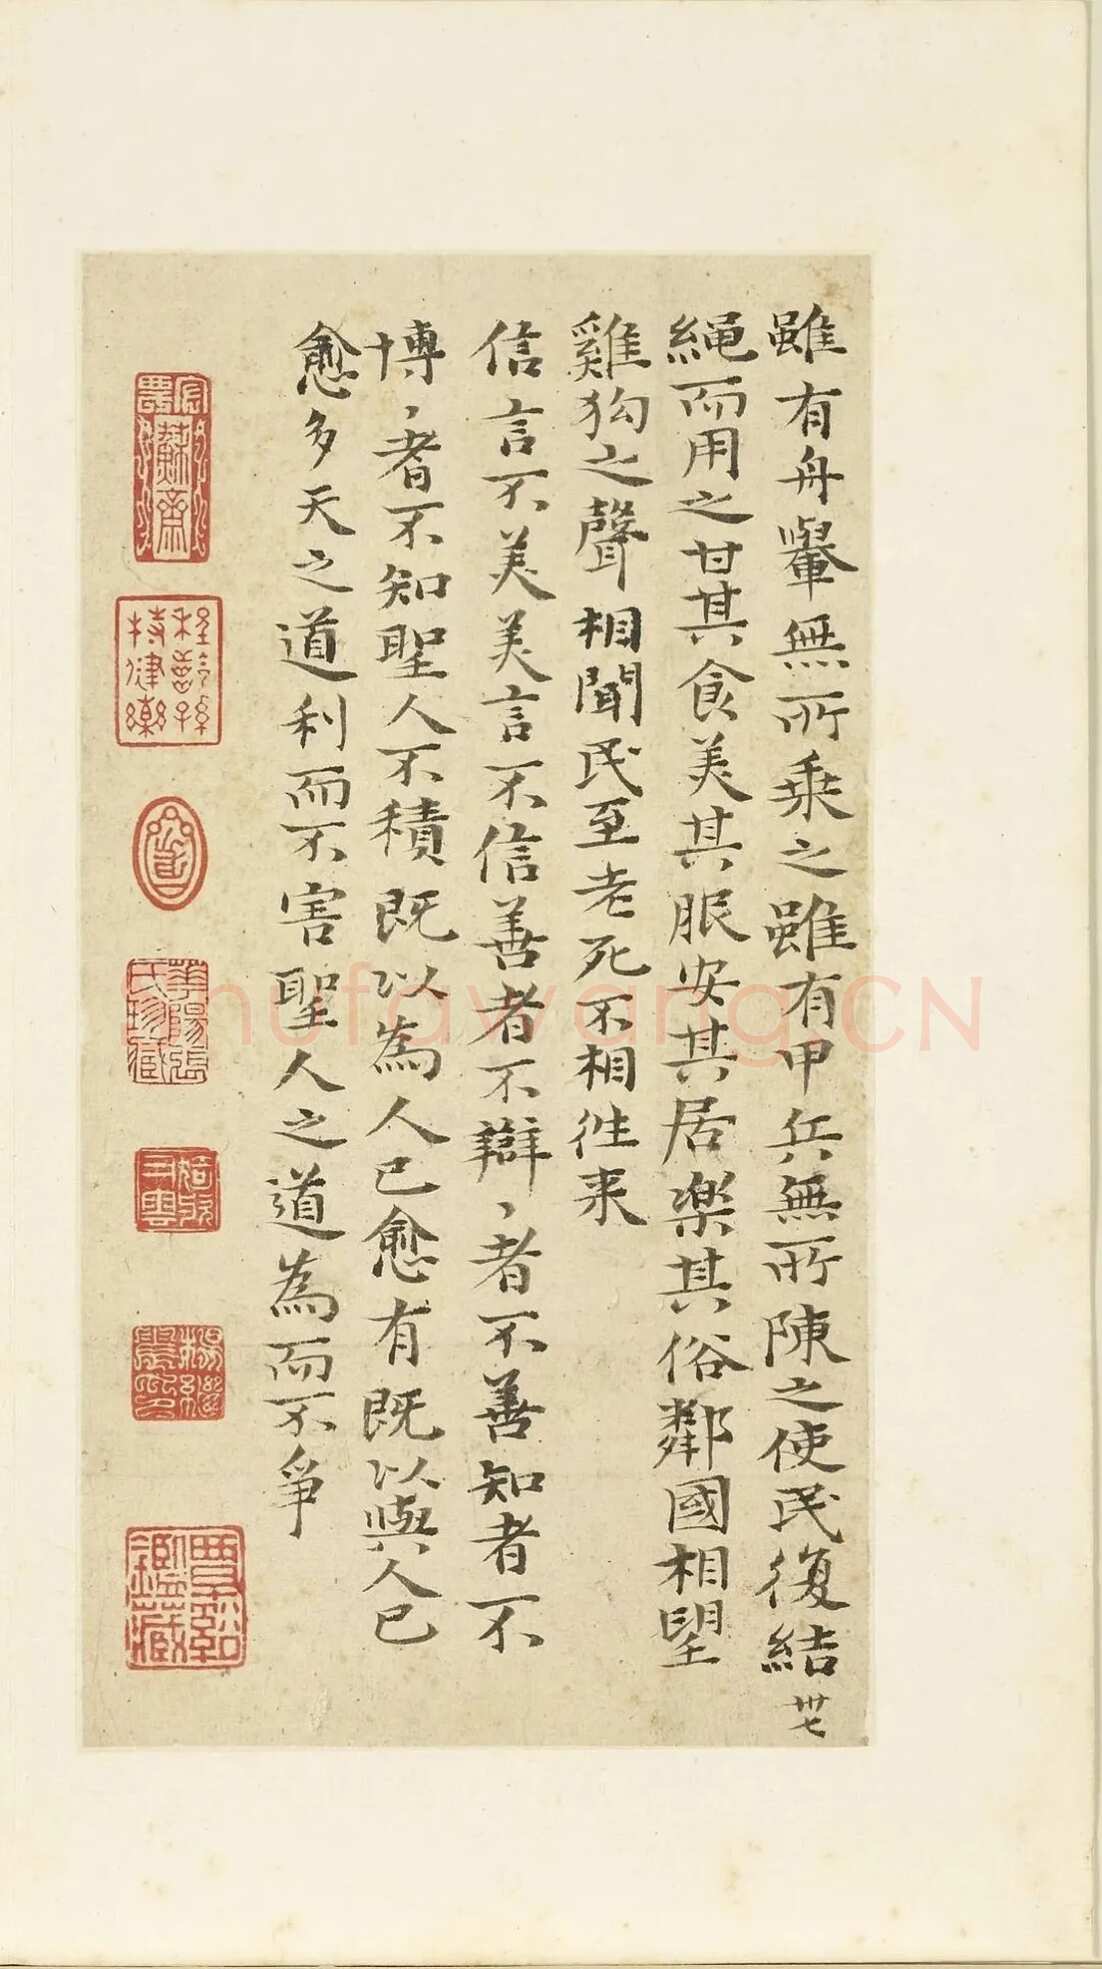 雖有舟轝無所乗之雖有甲兵無所陳之使民復結
卅七
繩而用之甘其食美其服安其居楽其俗鄰國相望
雞狗之聲相聞民至老死不相徃来
信言不美美言不信善者不辯〻者不善知者不
博〻者不知聖人不積既以為人已愈有既以與人已
愈多天之道利而不害聖人之道為而不爭
蘇齋
shufawang.CN